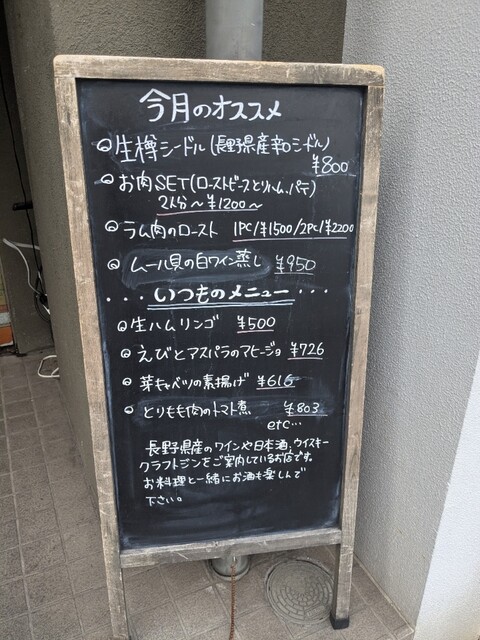 今月のオススメ
生樽シードル(長野県産辛口シードル)
¥800
お肉SET(ローストビーフとりハム、パテ)
2人分〜¥1200〜
ラム肉のロースト 1PC/¥1500/2PC/¥2200
ムール貝の白ワイン蒸し ¥950
・・・いつものメニュー・・・
生ハムリンゴ ¥500
えびとアスパラのアヒージョ ¥726
芽キャベツの素揚げ ¥616
とりもも肉のトマト煮 ¥803
etc…
長野県産のワインや日本酒、ウイスキー
クラフトジンをご案内しているお店です。
お料理と一緒にお酒も楽しんで
下さい。